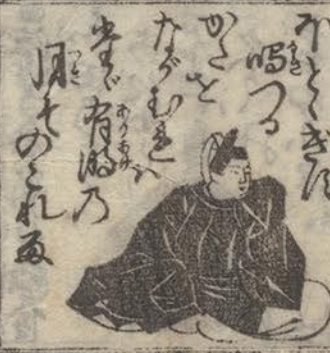 ほとゝきす
鳴つる
かたを
ながむれハ
たゞ有明の
月そのこれる